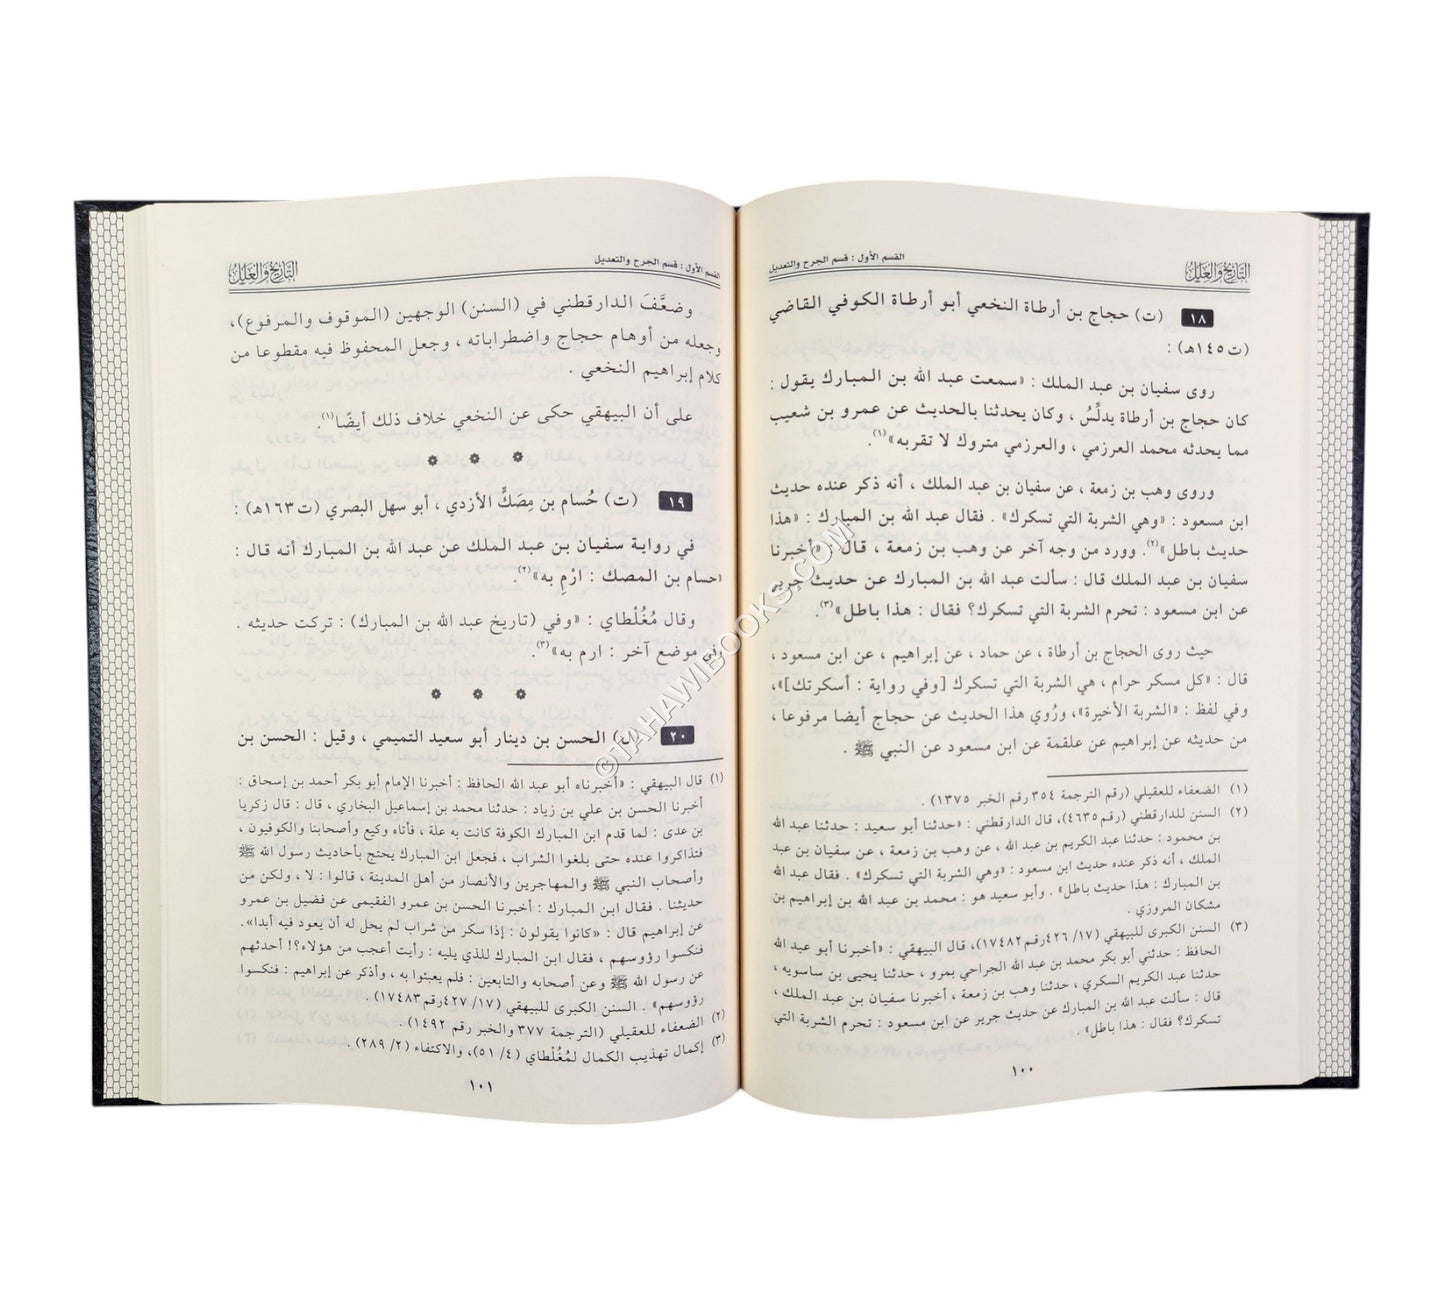 التاريخ والعلل
القسم الأول : قسم الجرح والتعديل
١٨ (ت) حجاج بن أرطاة النخعي أبو أرطاة الكوفي القاضي
(ت١٤٥هـ) :
روى سفيان بن عبد الملك : «سمعت عبد الله بن المبارك يقول :
كان حجاج بن أرطاة يدلِّسُ ، وكان يحدثنا بالحديث عن عمرو بن شعيب
مما يحدثه محمد العرزمي ، والعرزمي متروك لا تقربه»(١).
وروى وهب بن زمعة ، عن سفيان بن عبد الملك ، أنه ذكر عنده حديث
ابن مسعود : «وهي الشربة التي تسكرك» . فقال عبد الله بن المبارك : «هذا
حديث باطل»(٢). وورد من وجه آخر عن وهب بن زمعة ، قال : «أخبرنا
سفيان بن عبد الملك قال : سألت عبد الله بن المبارك عن حديث جرير
عن ابن مسعود : تحرم الشربة التي تسكرك؟ فقال : هذا باطل»(٣).
حيث روى الحجاج بن أرطاة ، عن حماد ، عن إبراهيم ، عن ابن مسعود ،
قال : «كل مسكر حرام ، هي الشربة التي تسكرك [وفي رواية : أسكرتك]»،
وفي لفظ : «الشربة الأخيرة»، ورُوي هذا الحديث عن حجاج أيضا مرفوعا ،
من حديثه عن إبراهيم عن علقمة عن ابن مسعود عن النبي ﷺ .
(١) الضعفاء للعقيلي (رقم الترجمة ٣٥٤ رقم الخبر ١٣٧٥) .
(٢) السنن للدارقطني (رقم ٤٦٣٥)، قال الدارقطني : «حدثنا أبو سعيد : حدثنا عبد الله
بن محمود : حدثنا عبد الكريم بن عبد الله ، عن وهب بن زمعة ، عن سفيان بن عبد
الملك ، أنه ذكر عنده حديث ابن مسعود : «وهي الشربة التي تسكرك» . فقال عبد الله
بن المبارك : هذا حديث باطل» . وأبو سعيد هو : محمد بن عبد الله بن إبراهيم بن
مشكان المروزي .
(٣) السنن الكبرى للبيهقي (١٧/ ٤٢٦رقم١٧٤٨٢)، قال البيهقي : «أخبرنا أبو عبد الله
الحافظ : حدثني أبو بكر محمد بن عبد الله الجراحي بمرو ، حدثنا يحيى بن ساسويه ،
حدثنا عبد الكريم السكري ، حدثنا وهب بن زمعة ، أخبرنا سفيان بن عبد الملك ،
قال : سألت عبد الله بن المبارك عن حديث جرير عن ابن مسعود : تحرم الشربة التي
تسكرك؟ فقال : هذا باطل» .
١٠٠
التاريخ والعلل
القسم الأول : قسم الجرح والتعديل
وضعَّفَ الدارقطني في (السنن) الوجهين (الموقوف والمرفوع)،
وجعله من أوهام حجاج واضطراباته ، وجعل المحفوظ فيه مقطوعا من
كلام إبراهيم النخعي .
على أن البيهقي حكى عن النخعي خلاف ذلك أيضًا(١).
١٩ (ت) حُسام بن مِصَكٍّ الأزدي ، أبو سهل البصري (ت١٦٣هـ) :
في رواية سفيان بن عبد الملك عن عبد الله بن المبارك أنه قال :
«حسام بن المصك : ارْمِ به»(٢).
وقال مُغُلْطاي : «وفي (تاريخ عبد الله بن المبارك) : تركت حديثه .
وفي موضع آخر : ارم به»(٣).
٢٠ (ت) الحسن بن دينار أبو سعيد التميمي ، وقيل : الحسن بن
(١) قال البيهقي : «أخبرناه أبو عبد الله الحافظ : أخبرنا الإمام أبو بكر أحمد بن إسحاق :
أخبرنا الحسن بن علي بن زياد : حدثنا محمد بن إسماعيل البخاري ، قال : قال زكريا
بن عدى : لما قدم ابن المبارك الكوفة كانت به علة ، فأتاه وكيع وأصحابنا والكوفيون ،
فتذاكروا عنده حتى بلغوا الشراب ، فجعل ابن المبارك يحتج بأحاديث رسول الله ﷺ
وأصحاب النبي ﷺ والمهاجرين والأنصار من أهل المدينة ، قالوا : لا ، ولكن من
حديثنا . فقال ابن المبارك : أخبرنا الحسن بن عمرو الفقيمى عن فضيل بن عمرو
عن إبراهيم قال : «كانوا يقولون : إذا سكر من شراب لم يحل له أن يعود فيه أبدا».
فنكسوا رؤوسهم ، فقال ابن المبارك للذي يليه : رأيت أعجب من هؤلاء؟! أحدثهم
عن رسول الله ﷺ وعن أصحابه والتابعين : فلم يعبئوا به ، وأذكر عن إبراهيم : فنكسوا
رؤوسهم» . السنن الكبرى للبيهقي (١٧/ ٤٢٧رقم١٧٤٨٣) .
(٢) الضعفاء للعقيلي (الترجمة ٣٧٧ والخبر رقم ١٤٩٢) .
(٣) إكمال تهذيب الكمال لمُغُلْطاي (٤/ ٥١)، والاكتفاء (٢/ ٢٨٩) .
١٠١
©TAHAWIBOOKS.COM